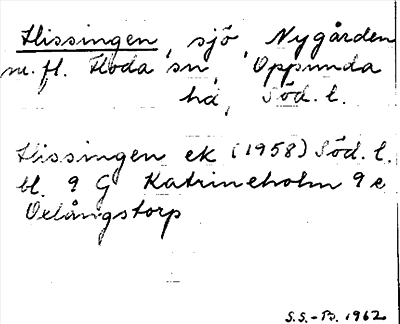 Hissingen, sjö, Nygården
m. fl. Floda sn, Oppunda
hd, Söd. l.
Hissingen ek (1958) Söd. l.
bl. 9 G Katrineholm 9 e
Valångstorp
S.S.-B. 1962